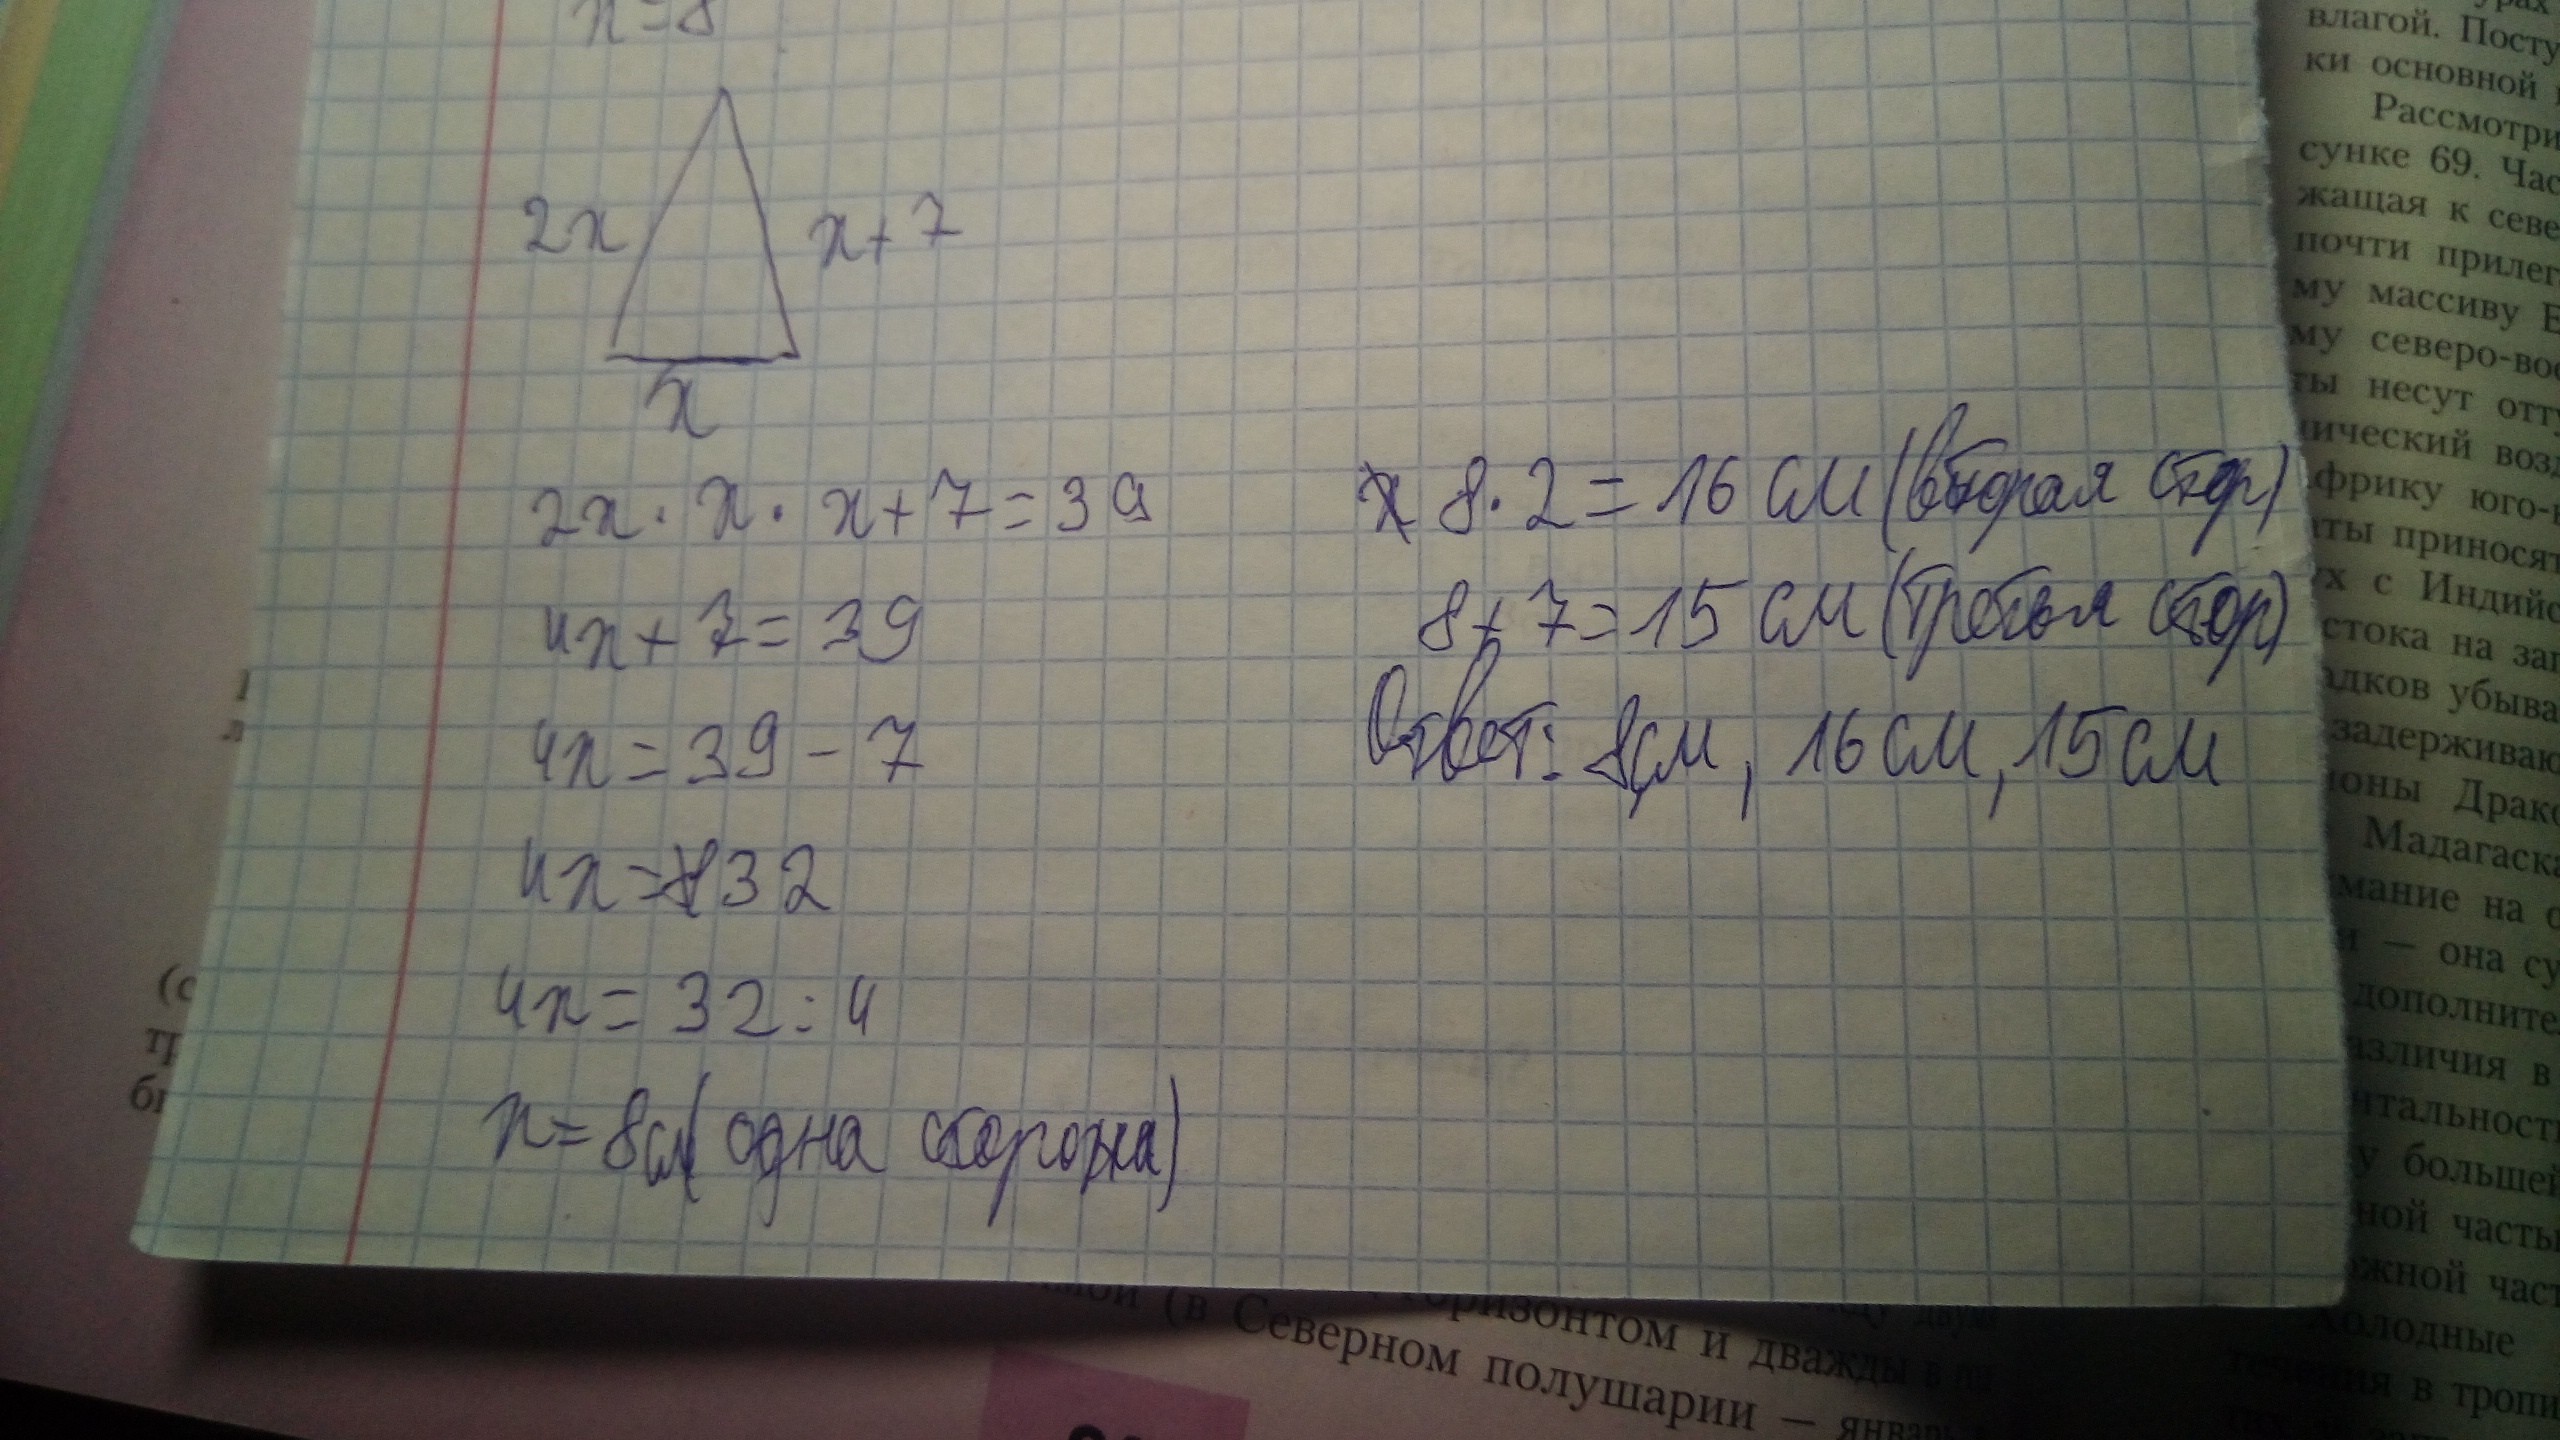 x=8
2x
x+7
x
2x · x · x+7=39
4x+7=39
4x=39-7
4x=32
4x=32:4
x=8см(одна сторона)
8·2=16 см (вторая стор)
8+7=15 см (третья стор)
Ответ: 8см, 16 см, 15 см
влагой. Посту
ки основной
Рассмотри
сунке 69. Час
жащая к севе
почти прилег
му массиву
му северо-вос
ты несут отту
ический возд
фрику юго-
ты приносят
х с Индийс
стока на зап
адков убыва
задерживаю
ионы Драко
Мадагаска
мание на о
и — она су
дополните
азличия в
нтальност
у большей
ной часть
ожной част
Холодные
течения в тропи
(с
тр
бы
горизонтом и дважды в
(в Северном полушарии — январь